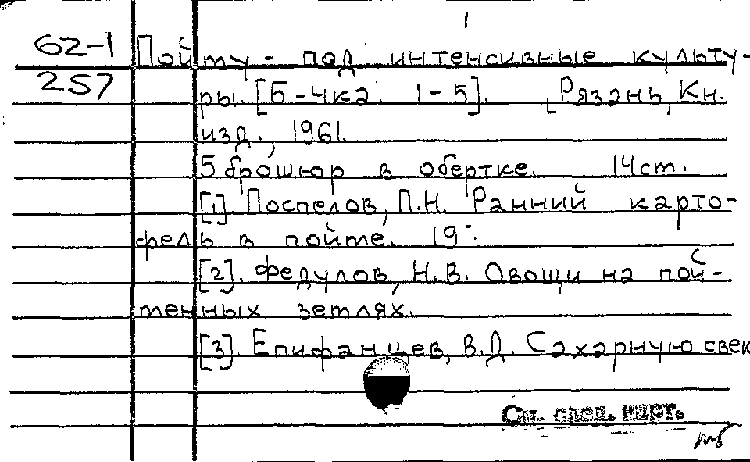 1
62-1 Пойму - под интенсивные культу-
257 ры. [Б-чка 1-5]. [Рязань, Кн.
изд., 1961.
5 брошюр в обертке. 14 ст.
[1] Поспелов, П.Н. Ранний карто-
фель в пойме. 19
[2]. Федулов, Н.В. Овощи на пой-
менных землях.
[3]. Епифанцев, В.Д. Сахарную свек
См. след. карт.